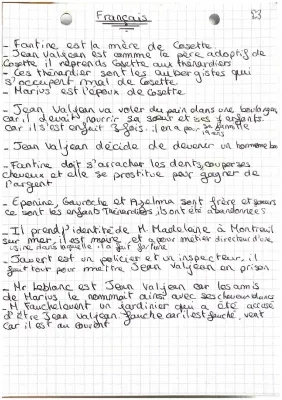 Français
- Fantine est la mère de Cosette
- Jean Valjean est comme le père adoptif de
Cosette il reprends Cosette aux thénardiers
- Ces thénardier sont les aubergistes qui
s'occupent mal de Cosette
- Marius est l'époux de Cosette
- Jean Valjean va voler du pain dans une boulangerie
car il devait nourrir sa sœur et ses 7 enfants
car il s'est enfuit
- Jean Valjean décide de devenir un homme
- Fantine doit s'arracher les dents, couper ses
cheveux et elle se prostitue pour gagner de
l'argent
- Eponine, Gavroche et Azelma sont frère et sœurs
ce sont les enfants Thénardiers, ils ont été abandonnées
- Il prend l'identité de M. Madelaine à Montreuil
sur mer, il est maire et a pour métier directeur d'une
usine dans laquelle il a fait fortune
- Javert est un policier et un inspecteur, il
faut tout pour mettre Jean Valjean en prison
- Mr Leblanc est Jean Valjean car les amis
de Marius le nommait ainsi avec ses cheveux blancs
- M. Fauchelevent un jardinier qui a été accusé
d'être Jean Valjean
car il est au courant